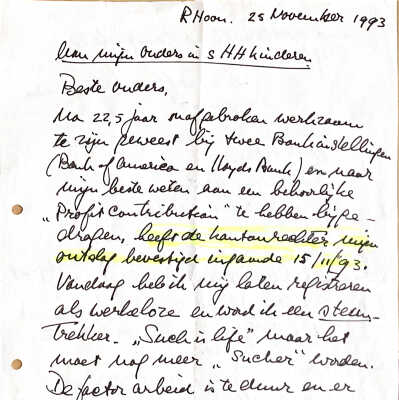 RHoon. 25 November 1993
Aan mijn ouders in 's HHkinderen
Beste ouders,
Na 22,5 jaar onafgebroken werkzaam
te zijn geweest bij twee Bankinstellingen
(Bank of America en Lloyds Bank) en naar
mijn beste weten aan een behoorlijke
"Profit contribution" te hebben bijge-
dragen, heeft de kantonrechter mijn
ontslag bevestigd ingaande 15/11/93.
Vandaag heb ik mij laten registreren
als werkeloze en word ik een steun-
trekker. "Such is life" maar het
moet nog meer "Sucher" worden.
De factor arbeid is te duur en er